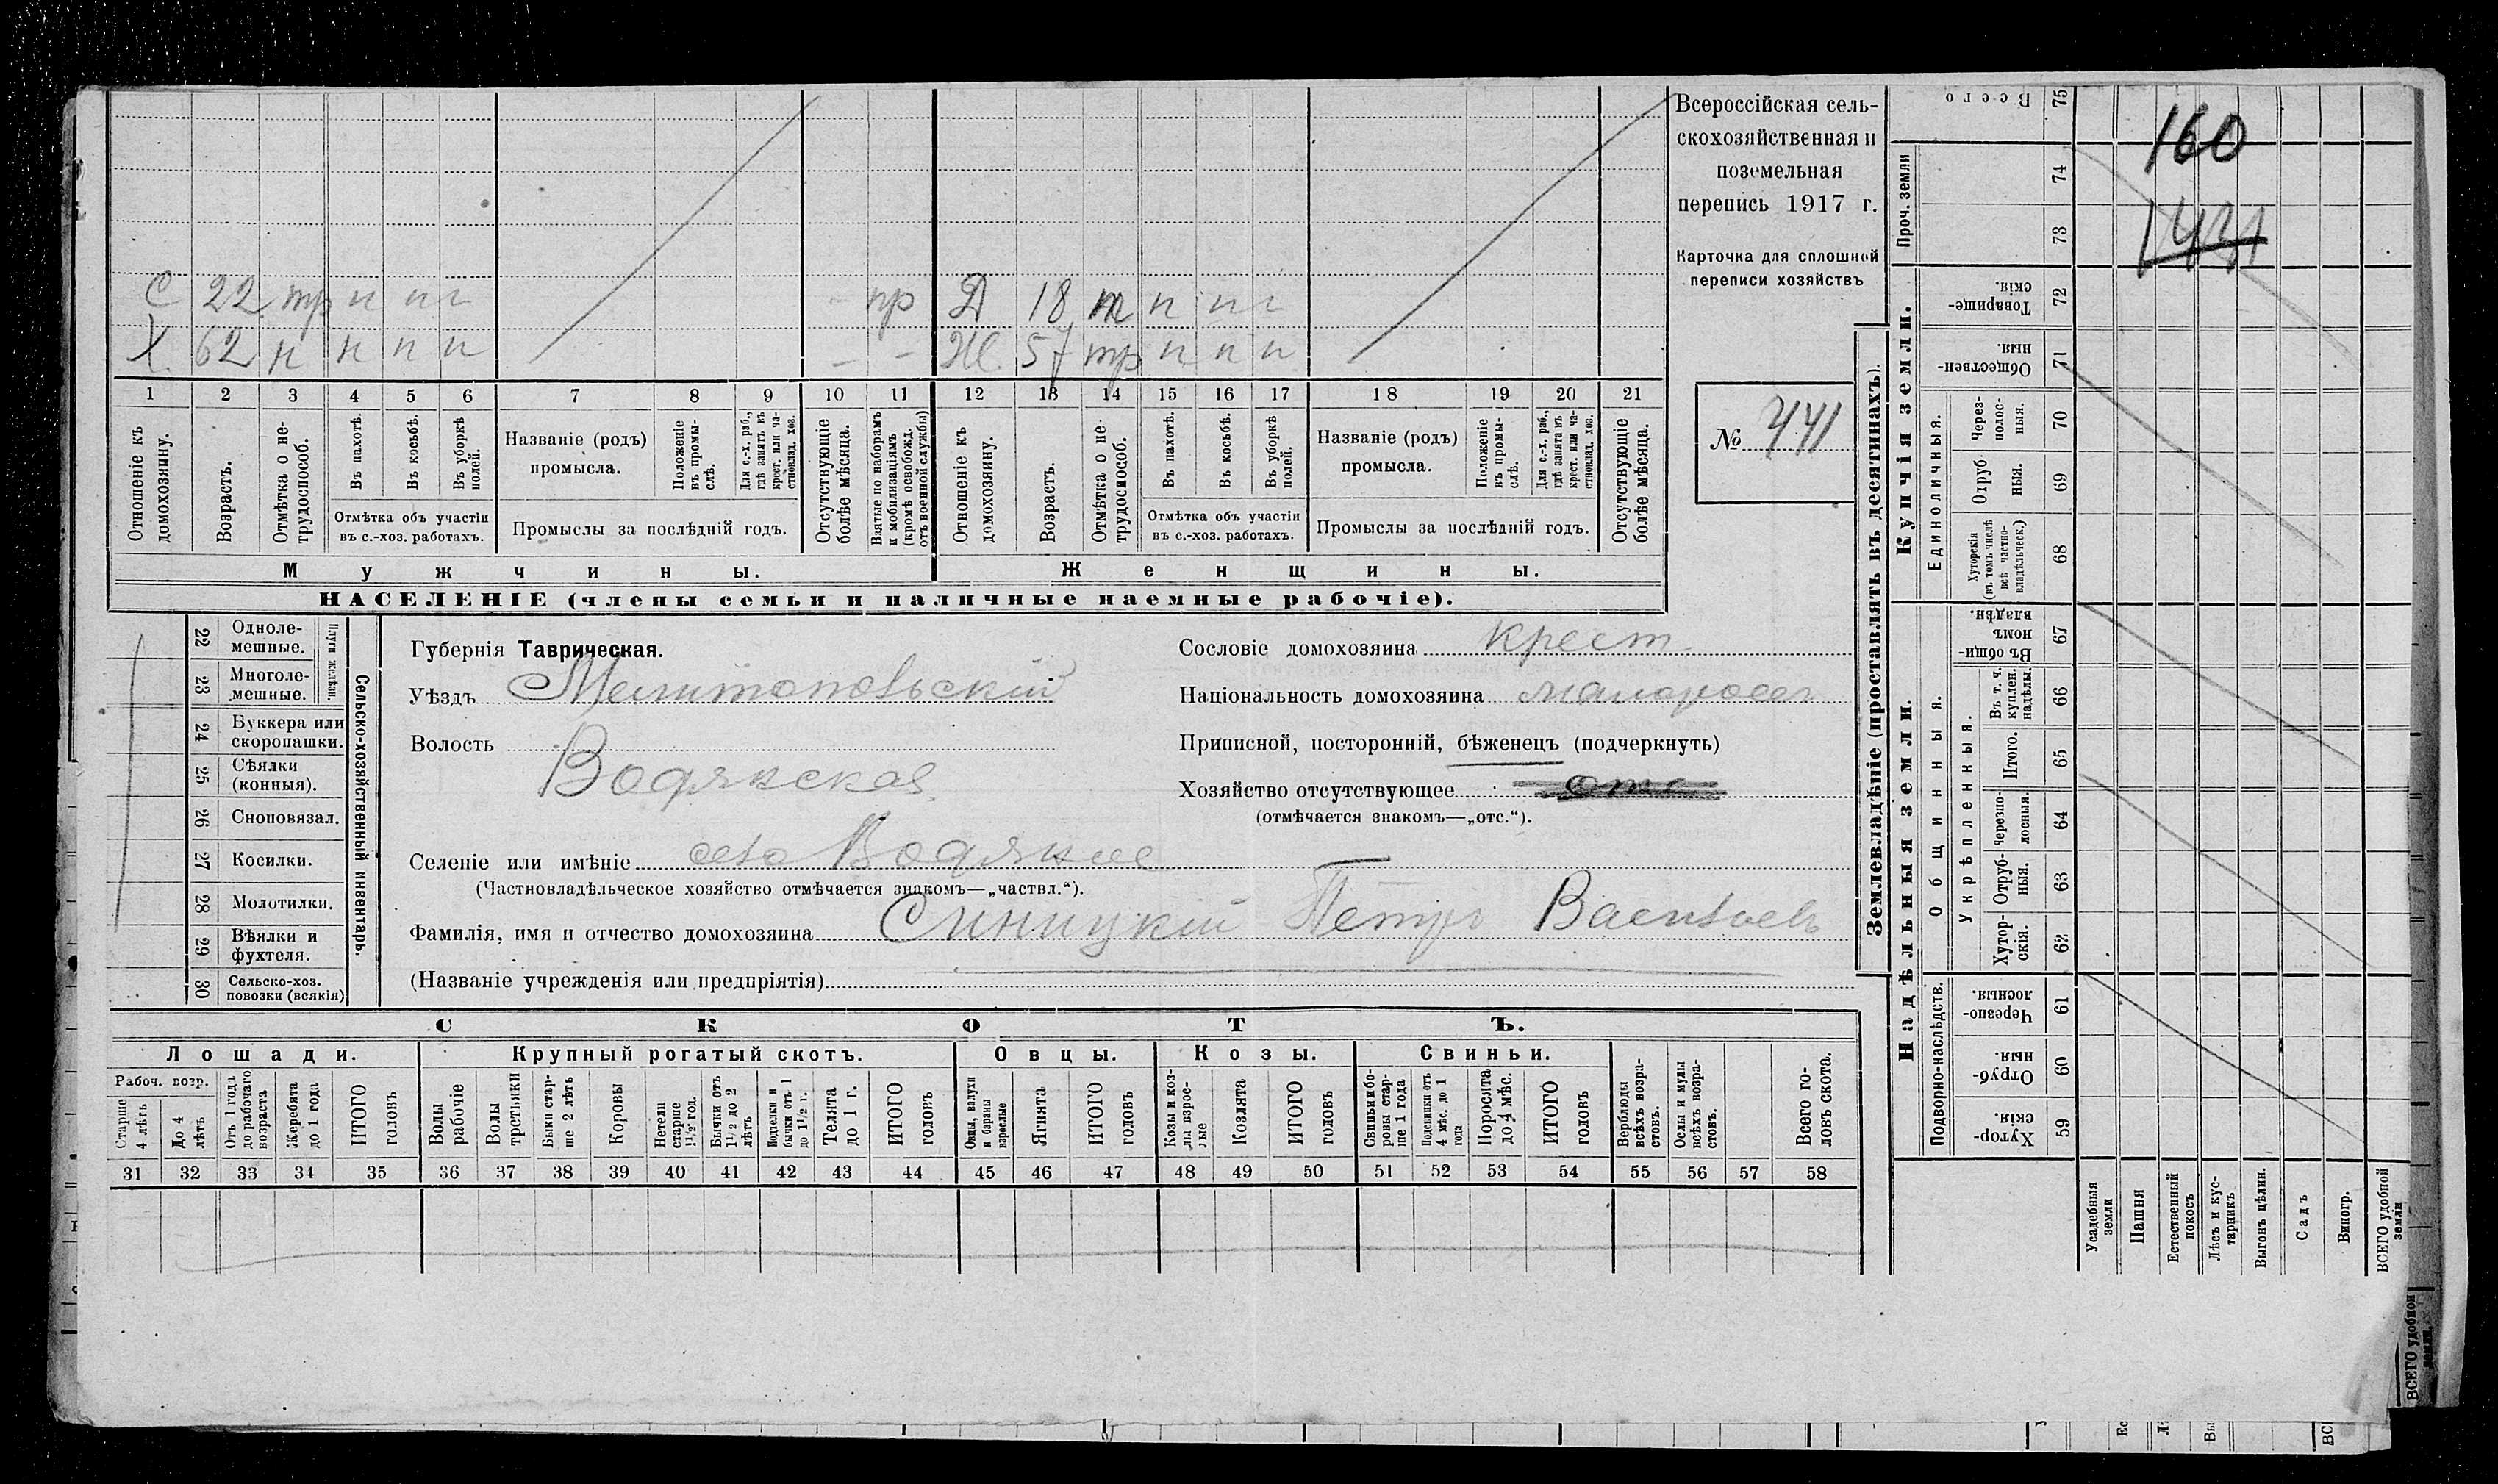 Всероссійская сель-
скохозяйственная и
поземельная
перепись 1917 г.
Карточка для сплошной
переписи хозяйствъ
№ 441
160
С 22 тр п п п
пр Д 18 т п п п
Х. 62 н н п п
- - Ж. 57 тр п п п
1 2 3 4 5 6 7 8 9 10 11 12 13 14 15 16 17 18 19 20 21
Отношеніе къ домохозяину.
Возрастъ.
Отмѣтка о не-трудоспособ.
Въ пахотѣ.
Въ косьбѣ.
Въ уборкѣ полей.
Отмѣтка объ участіи
въ с.-хоз. работахъ.
Названіе (родъ)
промысла.
Положеніе въ промы-слѣ.
Для с.-х. раб., гдѣ занятъ въ крест. или ча-стновлад. хоз.
Промыслы за послѣдній годъ.
Отсутствующіе болѣе мѣсяца.
Взятые по наборамъ и мобилизаціямъ (кромѣ освобожд. отъ военной службы)
Отношеніе къ домохозяину.
Возрастъ.
Отмѣтка о не-трудоспособ.
Въ пахотѣ.
Въ косьбѣ.
Въ уборкѣ полей.
Отмѣтка объ участіи
въ с.-хоз. работахъ.
Названіе (родъ)
промысла.
Положеніе въ промы-слѣ.
Для с.-х. раб., гдѣ занята въ крест. или ча-стновлад. хоз.
Промыслы за послѣдній годъ.
Отсутствующіе болѣе мѣсяца.
Мужчины.
Женщины.
НАСЕЛЕНІЕ (члены семьи и наличные наемные рабочіе).
Сельско-хозяйственный инвентарь.
Плуги желѣзн.
22 Одноле-мешные.
23 Многоле-мешные.
24 Буккера или скоропашки.
25 Сѣялки (конныя).
26 Сноповязал.
27 Косилки.
28 Молотилки.
29 Вѣялки и фухтеля.
30 Сельско-хоз. повозки (всякія)
Губернія Таврическая.
Уѣздъ Мелитопольскій
Волость
Водянская
Селеніе или имѣніе село Водяное
(Частновладѣльческое хозяйство отмѣчается знакомъ—„частвл.“).
Фамилія, имя и отчество домохозяина Синицкій Петръ Васильевъ
(Названіе учрежденія или предпріятія)
Сословіе домохозяина крест
Національность домохозяина малоросс
Приписной, посторонній, бѣженецъ (подчеркнуть)
Хозяйство отсутствующее отс
(отмѣчается знакомъ—„отс.“).
СКОТЪ.
Лошади. Крупный рогатый скотъ. Овцы. Козы. Свиньи.
Рабоч. возр.
Старше 4 лѣтъ
До 4 лѣтъ
Отъ 1 года до рабочаго возраста
Жеребята до 1 года
ИТОГО головъ
Волы рабочіе
Волы третьяки
Быки стар-ше 2 лѣтъ
Коровы
Нетели старше 1½ год.
Бычки отъ 1½ до 2 лѣтъ
Подтелки и бычки отъ 1 до 1½ г.
Телята до 1 г.
ИТОГО головъ
Овцы, валухи и бараны взрослые
Ягнята
ИТОГО головъ
Козы и коз-лы взрос-лые
Козлята
ИТОГО головъ
Свиньи и бо-ровы стар-ше 1 года
Подсвинки отъ 4 мѣс. до 1 года
Поросята до 4 мѣс.
ИТОГО головъ
Верблюды всѣхъ возра-стовъ.
Ослы и мулы всѣхъ возра-стовъ.
Всего го-ловъ скота.
31 32 33 34 35 36 37 38 39 40 41 42 43 44 45 46 47 48 49 50 51 52 53 54 55 56 57 58
Землевладѣніе (проставлять въ десятинахъ).
Надѣльныя земли.
Купчія земли.
Проч. земли
Всего 75
74
73
Товарище-скія. 72
Обществен-ныя 71
Единоличныя.
Через-полос-ныя. 70
Отруб-ныя. 69
Хуторскія (въ томъ числѣ всѣ частно-владѣльческ.) 68
Общинныя.
Въ общи-номъ владѣн. 67
Укрѣпленныя.
Въ т. ч. куплен. надѣлы. 66
Итого. 65
Черезпо-лосныя. 64
Отруб-ныя. 63
Хутор-скія. 62
Подворно-наслѣдств.
Черезпо-лосныя. 61
Отруб-ныя. 60
Хутор-скія. 59
Усадебныя земли
Пашня
Естественный покосъ
Лѣсъ и кус-тарникъ
Выгонъ цѣлин.
Садъ
Виногр.
ВСЕГО удобной земли
ВСЕГО удобной земли.